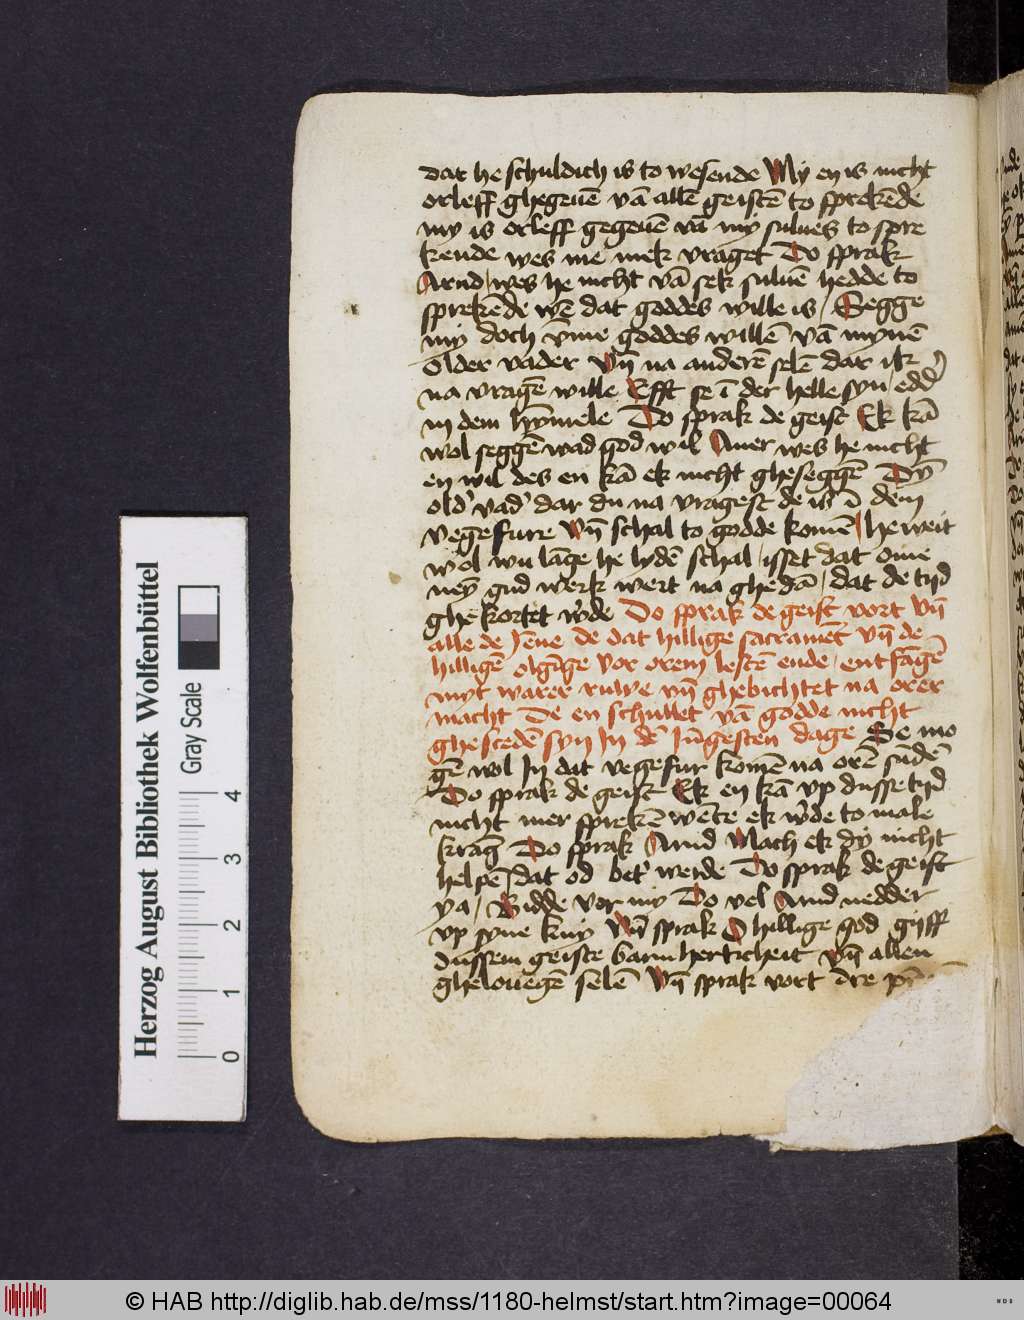 dat he schuldich is to wesende My en is nicht
orleff ghegeuē vā allē geistē to sprekēde
my is orleff gegeuē vā my sulues to spre
kende wes me mek vraget Do sprak
Arnd wes he nicht vā sek suluē hedde to
sprekēde wē dat goddes wille is / Segge
my doch v̄me goddes willē vā mynē
older vader vn̄ na anderē selē dar ik
na vragē wille Efft se ī der helle syn / edd'
in dem hȳmele Do sprak de geist Ek kā
wol seggē wad god wil Auer wes he nicht
en wil des en kā ek nicht gheseggē Dȳ
old' vad' dar du na vragest de is ī dem
vegefure vn̄ schal to godde komē / he weit
wol wu lāge he lydē schal / isset dat ome
neȳ gud werk wert na ghedā / dat de tijd
ghekortet w'de Do sprak de geist vort vn̄
alle de ȷēne de dat hillige sacramēt vn̄ de
hilligē olgīge vor orem lestē ende / entfāgē
myt warer ruwe vn̄ ghebichtet na orer
macht De en schullet vā godde nicht
ghescedē syn In dē Jūgesten dage Se mo
gē wol In dat vegefur komē na orē sūdē
Do sprak de geist Ek en kā vp dusse tijd
nicht mer sprekē wēte ek w'de to male
krāg Do sprak Arnd Mach ek dy nicht
helpē / dat od bet' werde Do sprak de geist
ya / Bidde vor my Do vel Arnd nedder
vp syne kny vn̄ sprak O hillige god gyff
dussem geiste barmherticheit vn̄ allen
ghelouegē selē vn̄ sprak vort dre
Herzog August Bibliothek Wolfenbüttel
Gray Scale
0 1 2 3 4
© HAB http://diglib.hab.de/mss/1180-helmst/start.htm?image=00064